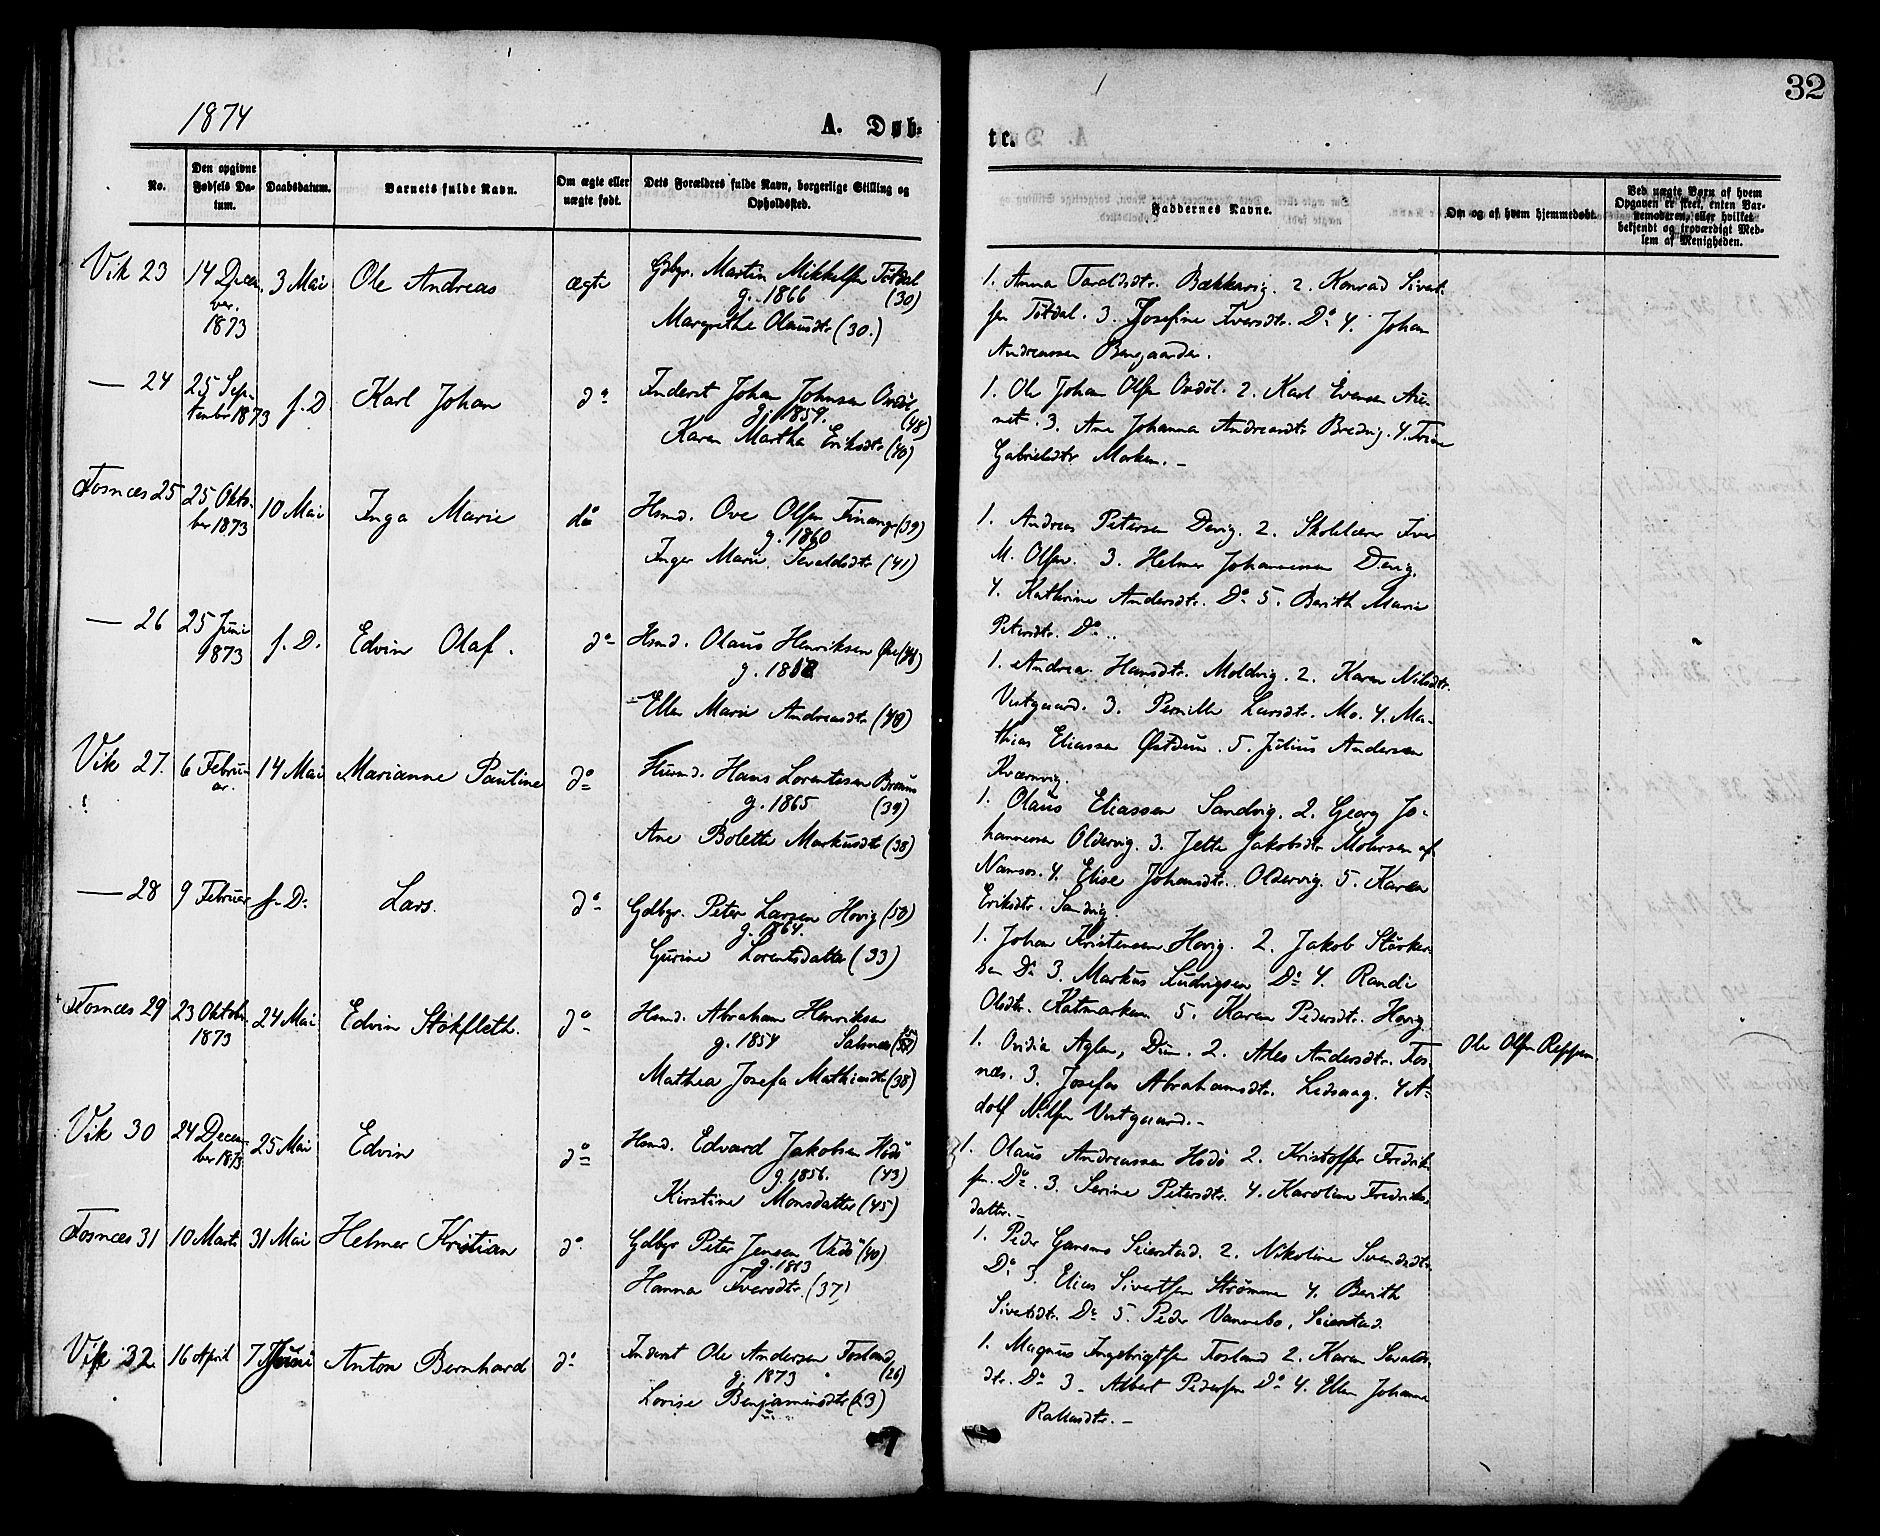 32
1874
A. Døb-
te.
No.
Den opgivne Fødsels Da-tum.
Daabsdatum.
Barnets fulde Navn.
Om ægte eller uægte født.
Dets Forældres fulde Navn, borgerlige Stilling og Opholdssted.
Faddernes Navne.
Om og af hvem hjemmedøbt.
Ved uægte Børn af hvem Opgaven er skeet, enten Bar-nemoderen, eller hvilket bekjendt og troværdigt Med-lem af Menigheden.
Vik 23 14 Decem- 3 Mai Ole Andreas ægte Gdbgr. Martin Mikkelsen Tötdal
ber. g. 1866 (30)
1873 Margrethe Olausdtr (30.)
1. Anna Haraldsdtr. Bækkavig. 2. Konrad Sivert-
sen Tötdal. 3. Josefine Iversdtr. Do 4. Johan
Andreassen
— 24 25 Sep- s. D. Karl Johan do Inderst Johan Johnsen
tember 1873 g. 1859. (48)
Karen Martha Eriksdtr (40)
1. Ole Johan Olsen 2. Karl Evensen Au-
net. 3. Ane Johanna Andreasdtr 4. Trine
Gabrielsdtr. Morken. —
Fosnæs 25 25 Okto- 10 Mai Inga Marie do Hsmd. Ove Olsen Finanger (39)
ber 1873 g. 1860
Inger Marie Sevaldsdtr (41)
1. Andreas Petersen Devig. 2. Skolelærer Iver
M. Olsen. 3. Helmer Johannessen Devig.
4. Kathrine Andersdtr. Do 5. Berith Marie
Petersdtr. Do.
— 26 25 Juni s. D. Edvin Olaf. do Hsmd. Olaus Henriksen
1873
Ellen Marie Andreasdtr (48)
1. Andrea Hansdtr. Moldvig. 2. Karen Nilsdtr.
Vestgaard. 3. Pernille Larsdtr. Mo. 4. Ma-
thias Eliassen 5. Julius Andersen
Kværnvig.
Vik 27. 6 Febru- 14 Mai Marianne Pauline do Husmd. Hans Lorentsen
ar. g. 1865 (39)
Ane Bolette Markusdtr (38)
1. Olaus Eliassen Sandvig. 2. Georg Jo-
hannesen Oldervig. 3. Jette Jakobsdtr. af
Namsos. 4. Elise Johansdtr. Oldervig. 5. Karen
Eriksdtr. Sandvig.
— 28 9 Februar s. D. Lars. do Gdbgr. Peter Larsen Hovig (50)
g. 1864.
Gurine Lorentsdatter (33)
1. Johan Kristensen Hovig. 2. Jakob
sen Do 3. Markus Ludvigsen Do 4. Randi
Olsdtr. Katmarken 5. Karen Pedersdtr. Hovig
Fosnæs 29 23 Oktobr. 24 Mai Edvin Stökfleth. do Hsmd. Abraham Henriksen
1873 g. 1854 Salsnes
Mathea Josefa Mathiasdtr (38)
1. Ovidia Aglen, Duun. 2. Ales Andersdtr. Fos-
næs. 3. Josefas Abrahamsdtr. 4. A-
dolf Nilsen Vestgaard. —
Ole Olsen Reppen.
Vik 30 24 Decem- 25 Mai Edvin do Hsmd. Edvard Jakobsen Hodö
ber 1873 g. 1856. (43)
Kirstine Monsdatter (45)
1. Olaus Andreassen Hodö 2. Kristoffer Fredrik-
sen. Do. 3. Serine Petersdtr. 4. Karoline Fredriks-
datter. —
Fosnæs 31 10 Marts 31 Mai Helmer Kristian do Gdbgr Peter Jensen (40)
Hanna Iversdtr. (37)
1. Peder Gansmo Seierstad. 2. Nikoline Svendsdtr.
Do 3. Elias Sivertsen Strömme 4. Berith
Sivertsdtr. Do 5. Peder Vannebo, Seierstad.
Vik 32 16 April 7 Juni Anton Bernhard do Inderst Ole Andersen Fosland
g. 1873 (26)
Lovise Benjaminsdtr (23)
1. Magnus Ingebrigtsen Fosland 2. Karen Sevalds-
dtr. Do 3. Albert Pedersen Do 4. Ellen Johanna
—